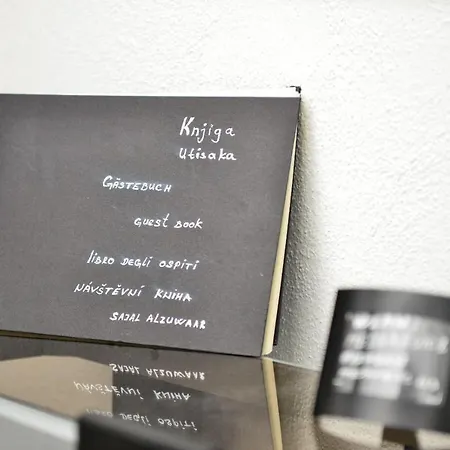 Knjiga
Utisaka
GÄSTEBUCH
GUEST BOOK
LIBRO DEGLI OSPITI
NÁVŠTĚVNÍ KNIHA
SAJAL ALZUWAAR